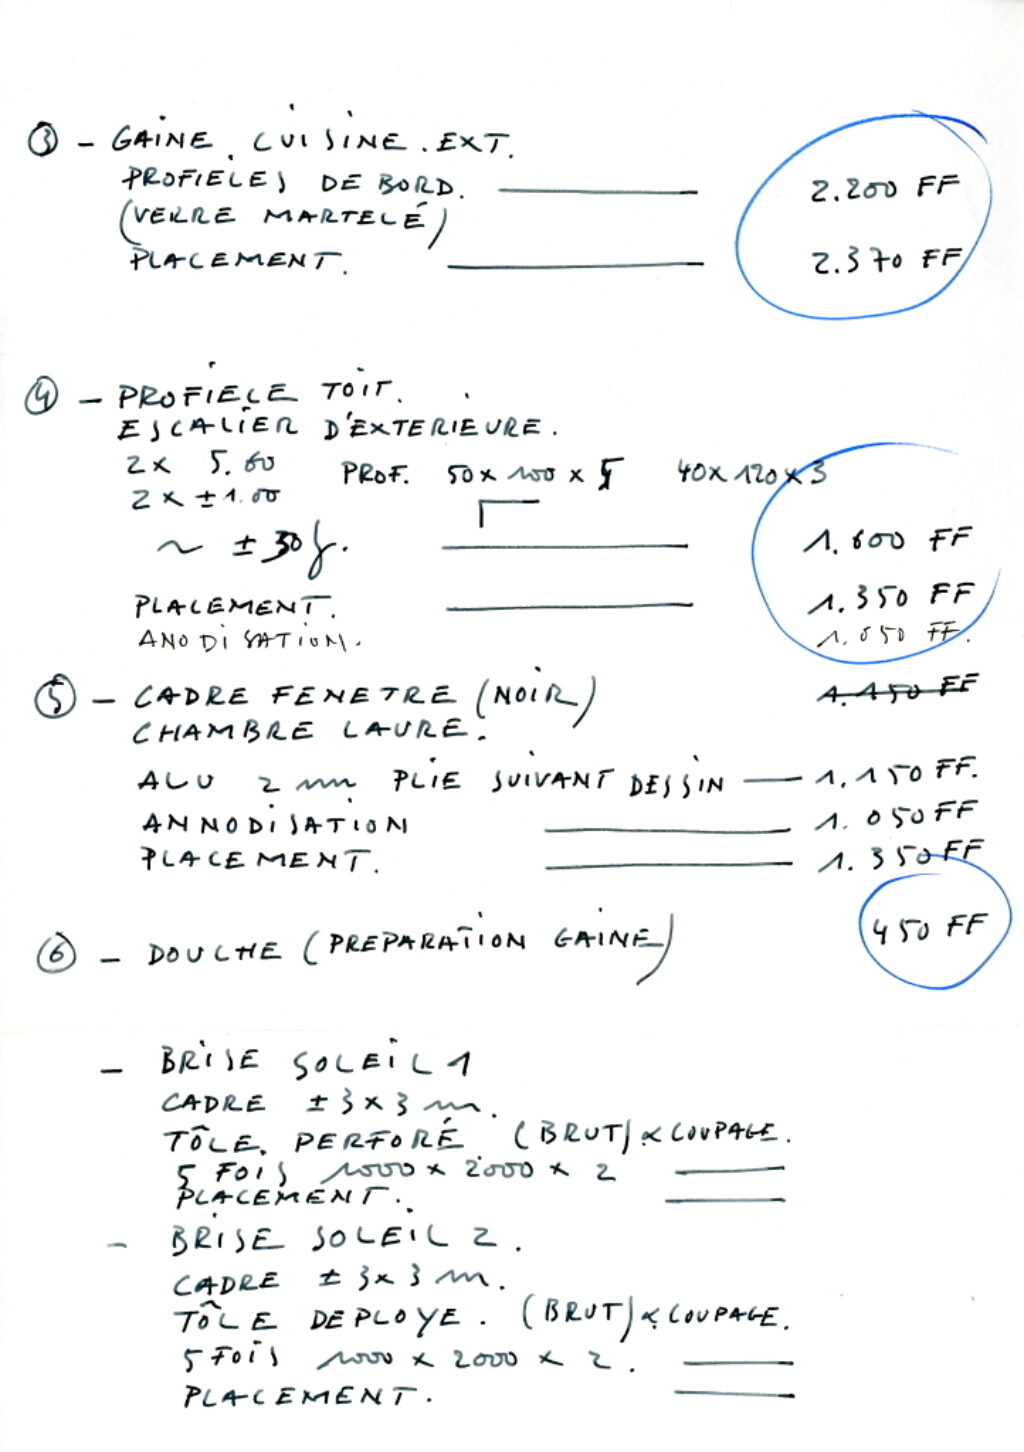 ③ - GAINE. CUISINE. EXT.
PROFIELES DE BORD. 2.200 FF
(VERRE MARTELÉ)
PLACEMENT. 2.370 FF
④ - PROFIELE TOIT.
ESCALIER D'EXTERIEURE.
2x 5.60 PROF. 50 x 100 x 5 40x120x3
2x ±1.00
~ ±30 1.600 FF
PLACEMENT. 1.350 FF
ANODISATION. 1.050 FF.
⑤ - CADRE FENETRE (NOIR) 1.150 FF
CHAMBRE LAURE.
ALU 2 mm PLIE SUIVANT DESSIN 1.150 FF.
ANNODISATION 1.050 FF
PLACEMENT. 1.350 FF
⑥ - DOUCHE (PREPARATION GAINE) 450 FF
- BRISE SOLEIL 1
CADRE ± 3 x 3 m.
TÔLE. PERFORÉ (BRUT) & COUPAGE.
5 FOIS 1000 x 2000 x 2
PLACEMENT.
- BRISE SOLEIL 2.
CADRE ± 3x 3 m.
TÔLE DEPLOYE. (BRUT) & COUPAGE.
5 FOIS 1000 x 2000 x 2.
PLACEMENT.